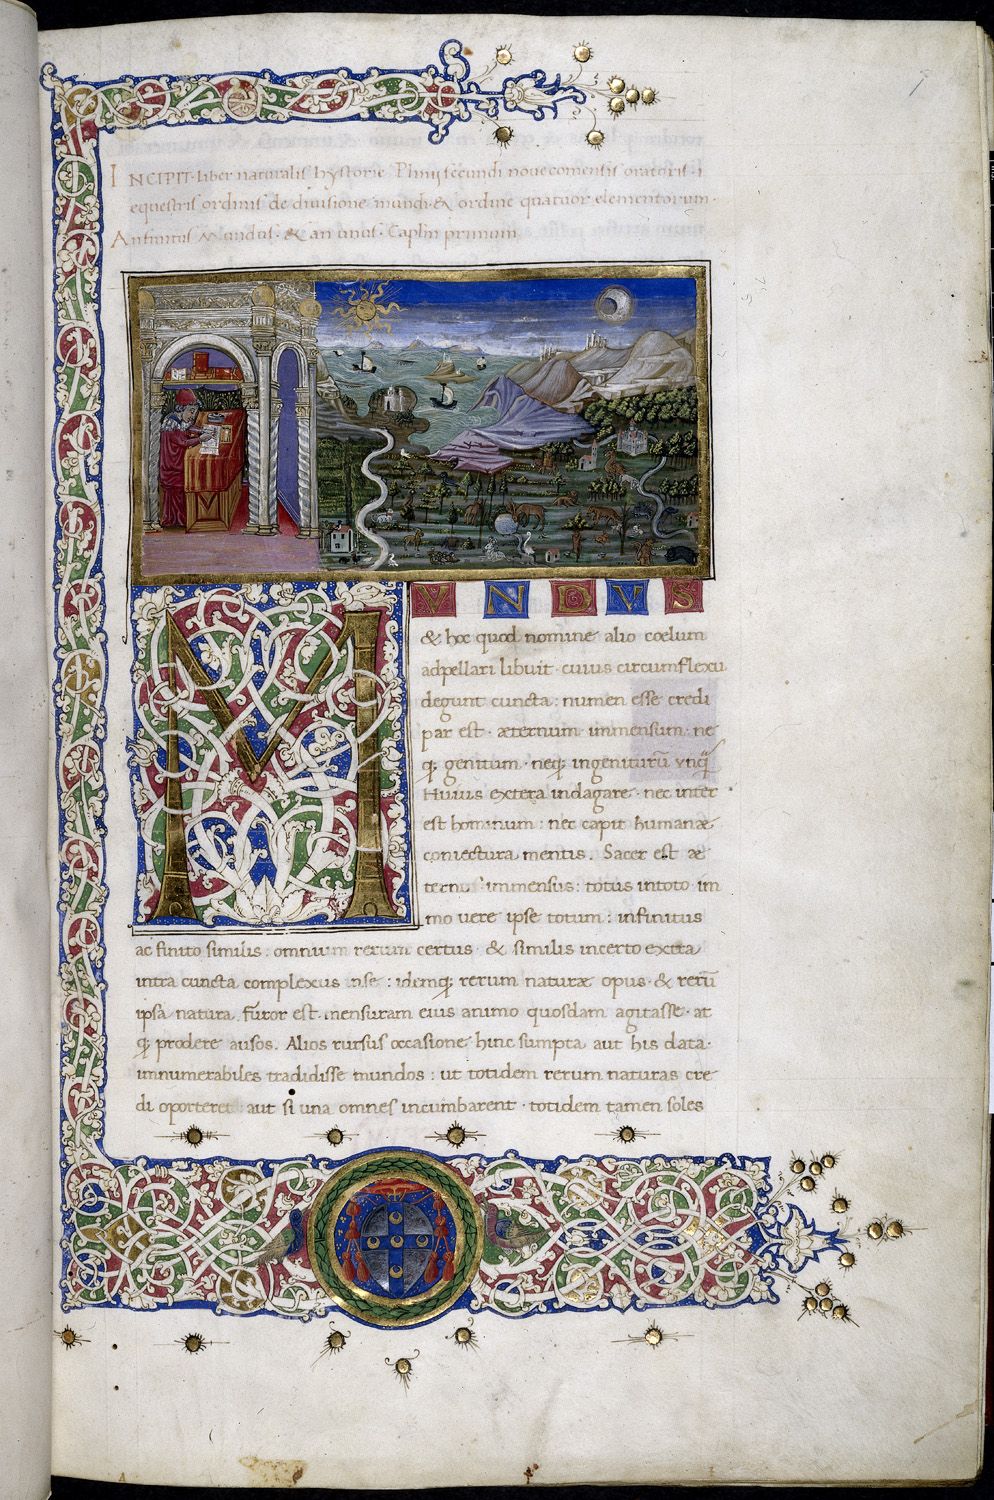 INCIPIT · liber naturalis hystorie Plinij secundi novecomensis oratoris · i
equestris ordinis de divisione mundi · & ordine quatuor elementorum ·
An finitus Mundus · & an unus · Caplm primum
MVNDVS
& hoc quod nomine alio coelum
adpellari libuit · cuius circumflexu
degunt cuncta : numen esse credi
par est · æternum immensum · ne
q; genitum · neq; ingeniturũ vnq̃
Huius extera indagare · nec inter
est hominum : nec capit humanæ
coniectura mentis . Sacer est æ
ternus immensus : totus intoto im
mo vere ipse totum : infinitus
ac finito similis : omnium rerum certus · & similis incerto extra
intra cuncta complexus inse : idemq; rerum naturæ opus · & rerũ
ipsa natura . furor est mensuram eius animo quosdam agitasse · at
q; prodere ausos . Alios rursus occasione hinc sumpta aut his data ·
innumerabiles tradidisse mundos : ut totidem rerum naturas cre
di oporteret aut si una omnes incumbarent · totidem tamen soles